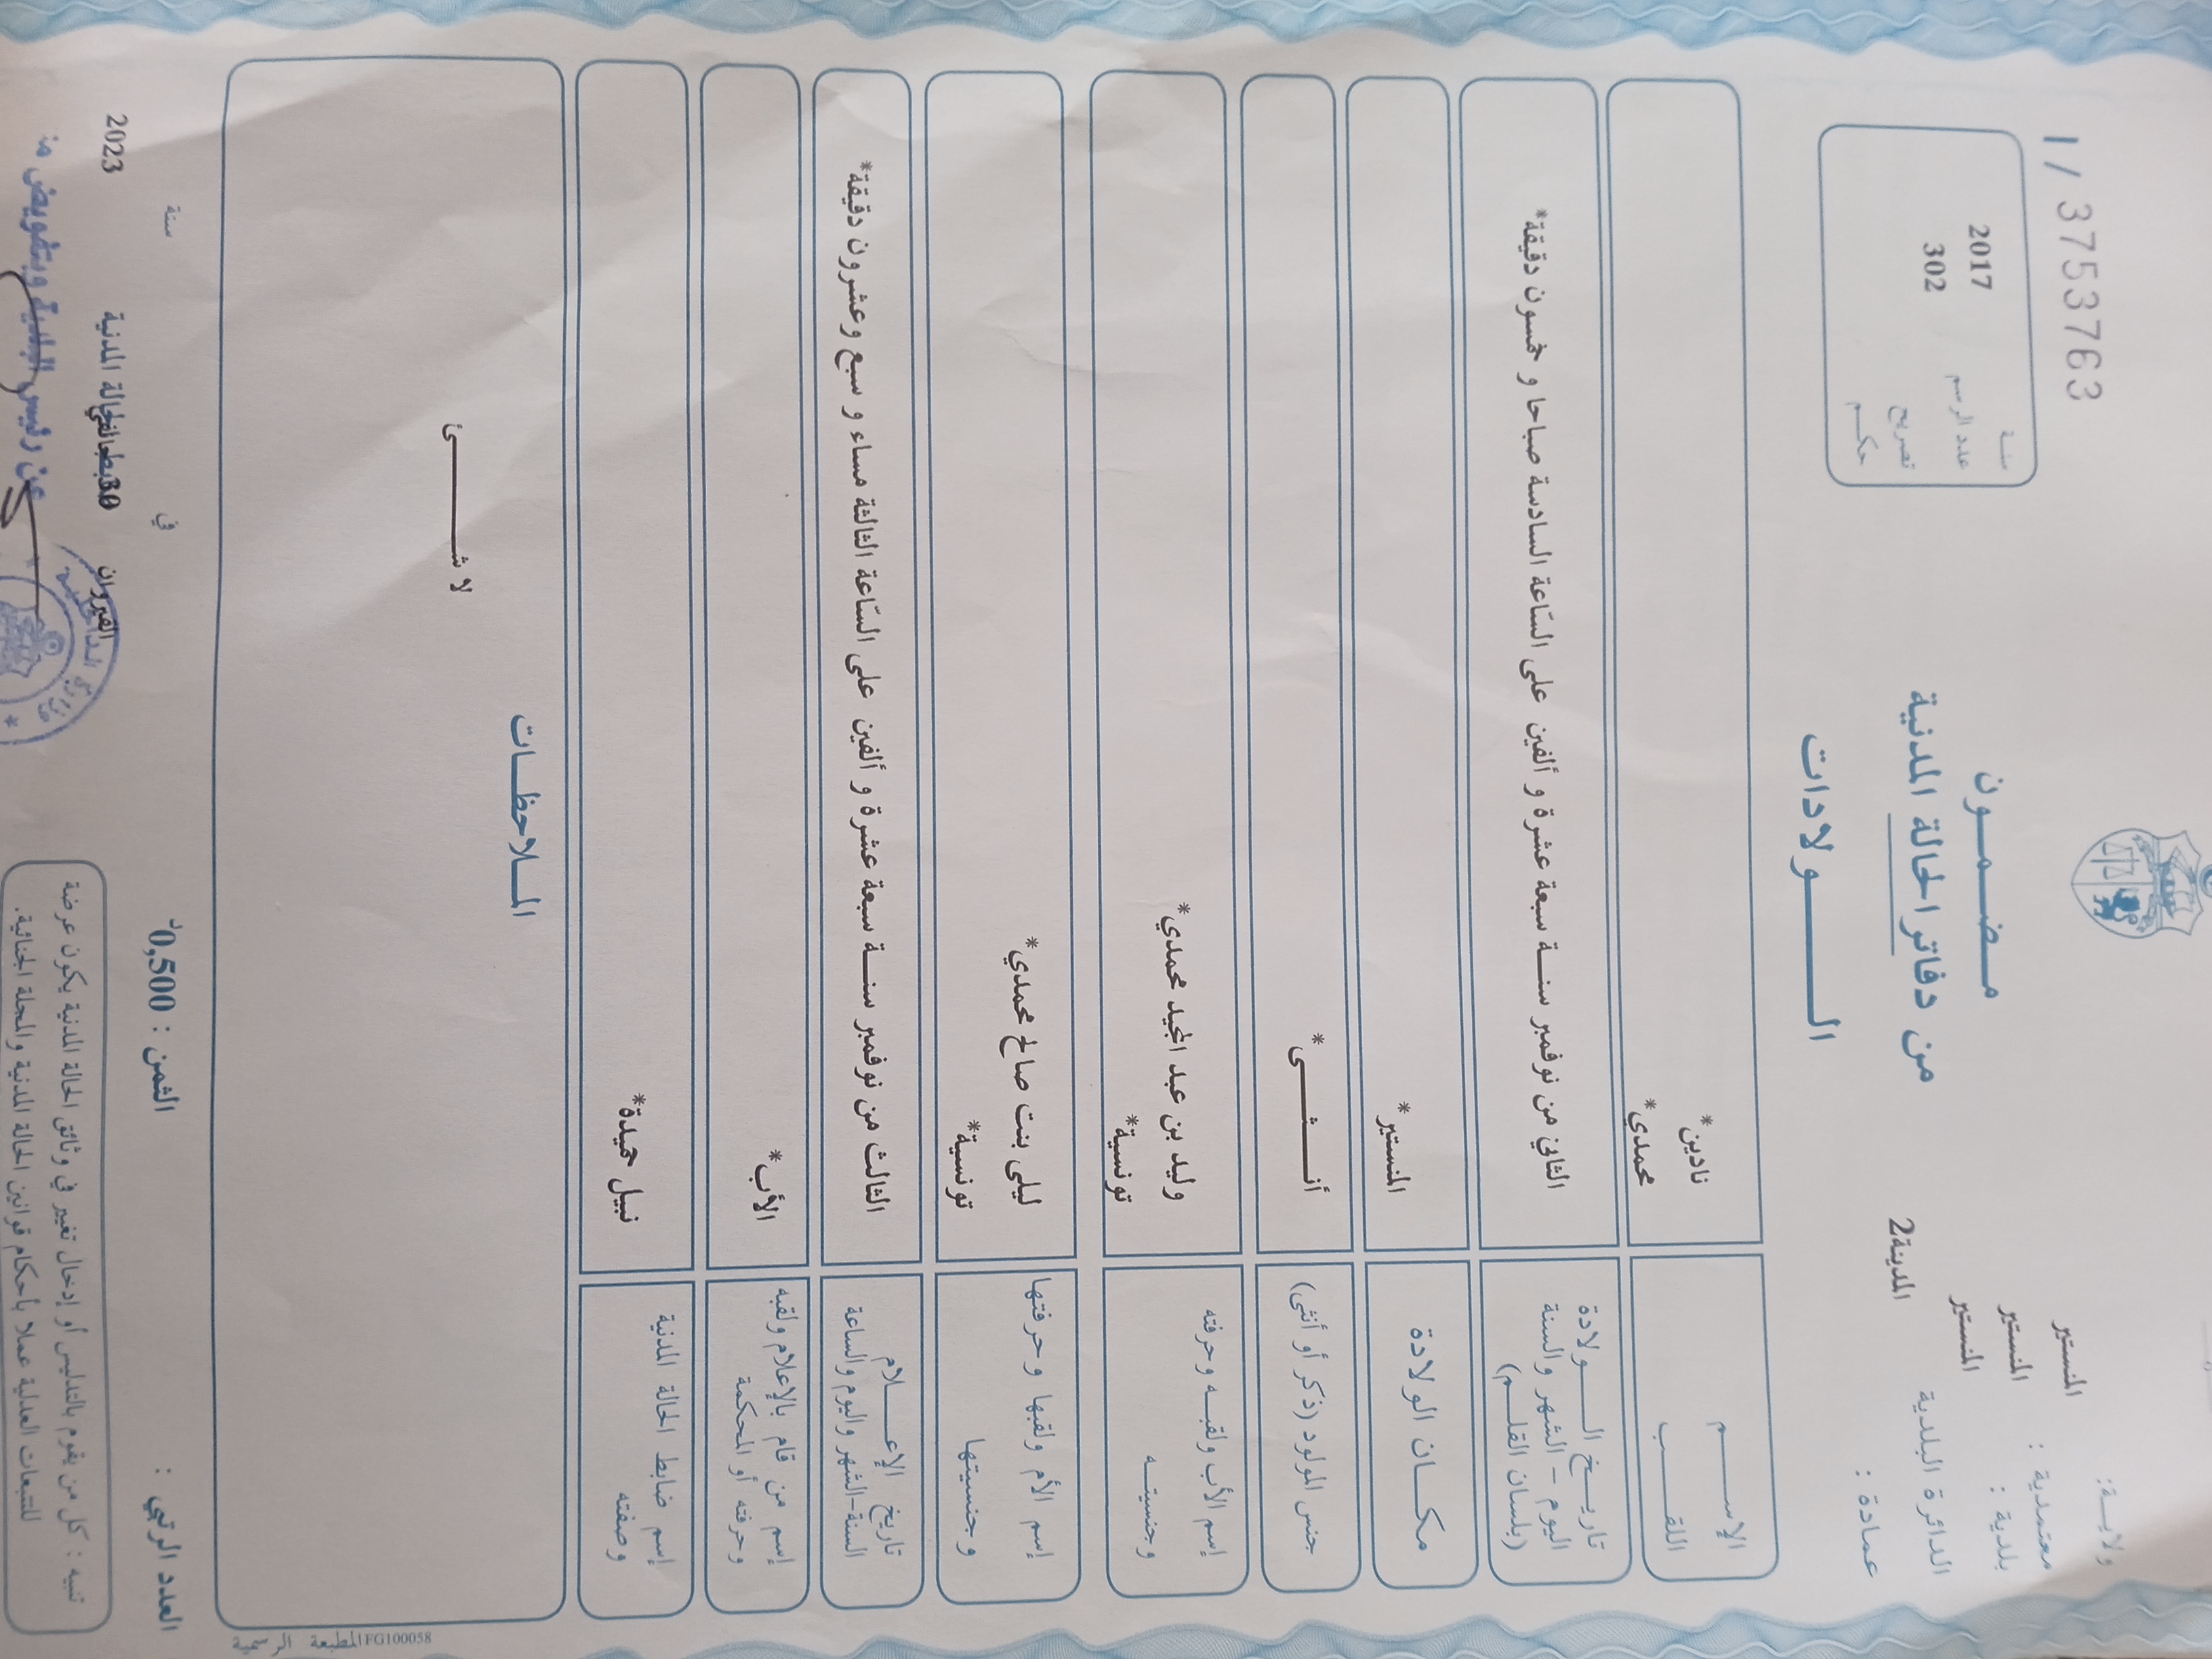 1/ 3753763
سنـة 2017
عدد الرسم 302
تصريح
حكـم
مـضـمـون
من دفاتر الحالة المدنية
الـــولادات
ولايـة: المنستير
معتمدية : المنستير
بلدية : المنستير
الدائرة البلدية
عمادة : المدينة2
الإســـم نادين*
اللقـــب محمدي*
تاريـخ الــولادة
اليوم - الشهر والسنة
(بلسان القلــم)
الثاني من نوفمبر سنــة سبعة عشرة و ألفين على السّاعة السادسة صباحا و خمسون دقيقة*
مكــان الولادة المنستير*
جنس المولود (ذكر أو أنثى) أنـــثـــى*
إسم الأب ولقبـه وحرفته وليد بن عبد المجيد محمدي*
وجنسيتــه تونسية*
إسم الأم ولقبها وحرفتها ليلى بنت صالح محمدي*
وجنسيتها تونسية*
تاريخ الإعــــلام
السنة-الشهر واليوم والساعة
الثالث من نوفمبر سنــة سبعة عشرة و ألفين على السّاعة الثالثة مساء و سبع وعشرون دقيقة*
إسم من قام بالإعلام ولقبه
وحرفته أو المحكمة
الأب*
إسم ضابط الحالة المدنية
وصفته
نبيل حميدة*
المـلاحظـات
لا شـــــــئ
المطبعة الرسمية FG100058
العدد الرتبي :
الثمن : 0,500د
في
سنة
القيروان
الحالة المدنية
2023
عن رئيس البلدية وبتفويض منه
تنبيه : كل من يقوم بالتدليس أو إدخال تغيير في وثائق الحالة المدنية يكون عرضة
للتتبعات العدلية عملا بأحكام قوانين الحالة المدنية والمجلة الجنائية.